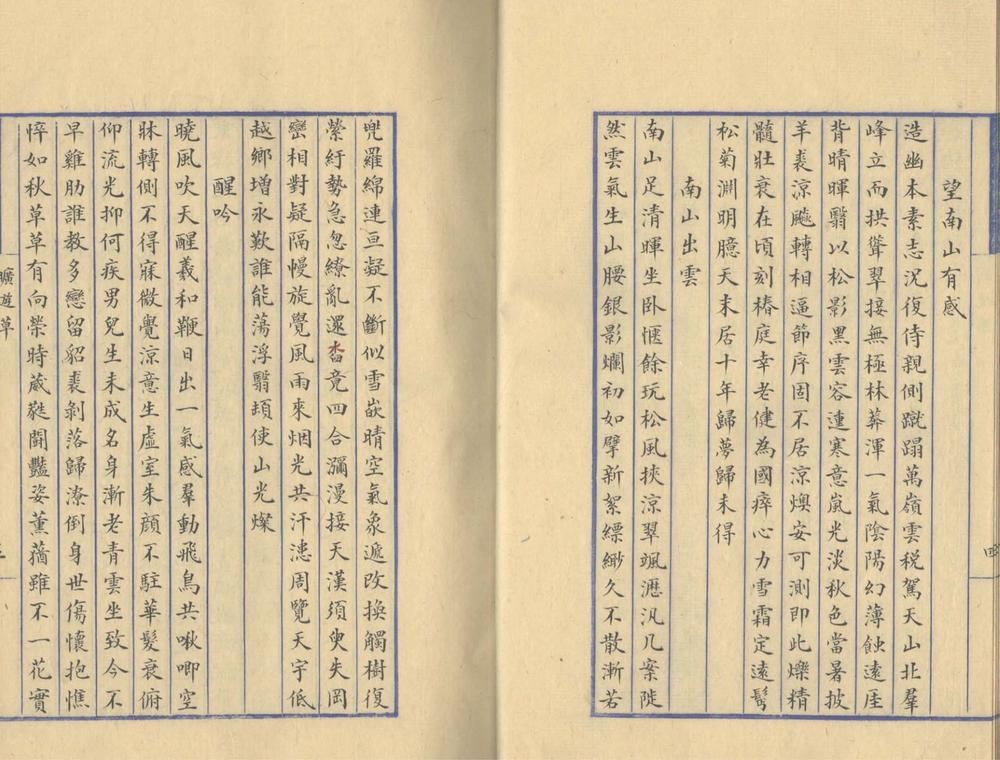 望南山有感
造幽本素志况復侍親側蹴蹋萬嶺雲税駕天山北羣
峰立而拱聳翠接無極林莽渾一氣陰陽幻薄蝕遠厓
背晴暉翳以松影黑雲容連寒意嵐光淡秋色當暑披
羊裘涼飈轉相逼節序固不居涼燠安可測即此爍精
髓壯衰在頃刻椿庭幸老健為國瘁心力雪霜定遠髩
松菊淵明臆天末居十年歸夢歸未得
南山出雲
南山足清暉坐卧愜餘玩松風挾涼翠颯瀝汎几案陡
然雲氣生山腰銀影爛初如擘新絮縹緲久不散漸若
兜羅綿連亘凝不斷似雪嵌晴空氣象遞改換觸樹復
縈紆勢急忽繚亂還沓竟四合瀰漫接天漢須臾失岡
巒相對疑隔幔旋覺風雨來烟光共汗漶周覽天宇低
越鄉增永歎誰能蕩浮翳頓使山光燦
醒吟
曉風吹天醒羲和鞭日出一氣感羣動飛鳥共啾唧空
牀轉側不得寐微覺涼意生虛室朱顏不駐華髮衰俯
仰流光抑何疾男兒生未成名身漸老青雲坐致今不
早雞肋誰教多戀留貂裘剝落歸潦倒身世傷懷抱憔
悴如秋草草有向榮時葳蕤鬭豔姿薰蕕雖不一花實
曠遊草
四